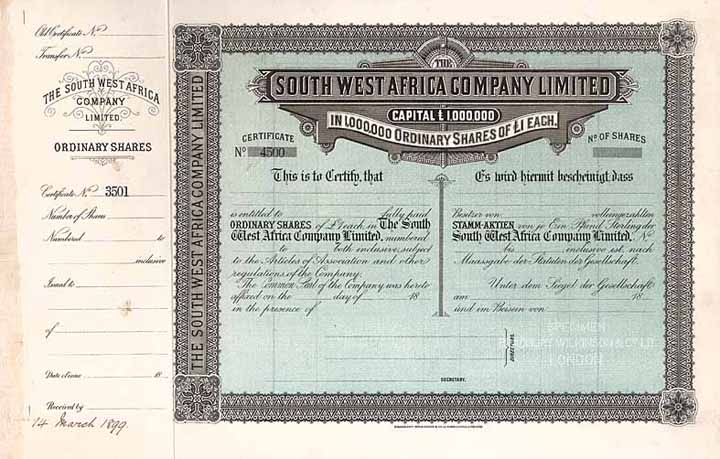 Old Certificate No
Transfer No
THE SOUTH WEST AFRICA
COMPANY
LIMITED
ORDINARY SHARES
Certificate No 3501
Number of Shares
Numbered to
inclusive
Issued to
of
Date of issue 18
Received by
14 March 1899
THE SOUTH WEST AFRICA COMPANY LIMITED
THE
SOUTH WEST AFRICA COMPANY LIMITED
CAPITAL £1,000,000
IN 1,000,000 ORDINARY SHARES OF £1 EACH.
CERTIFICATE
No 4500
No OF SHARES
This is to Certify, that
is entitled to fully paid
ORDINARY SHARES of £1 each in The South
West Africa Company Limited, numbered
to both inclusive, subject
to the Articles of Association and other
regulations of the Company.
The Common Seal of the Company was hereto
affixed on the day of 18
in the presence of
Es wird hiermit bescheinigt, dass
Besitzer von volleingezahlten
STAMM-AKTIEN von je Ein Pfund Sterling der
South West Africa Company Limited, No
bis inclusive ist, nach
Maassgabe der Statuten der Gesellschaft.
Unter dem Siegel der Gesellschaft
am 18
und im Beisein von
SPECIMEN
BRADBURY WILKINSON & Co LD.
LONDON
DIRECTORS.
SECRETARY.